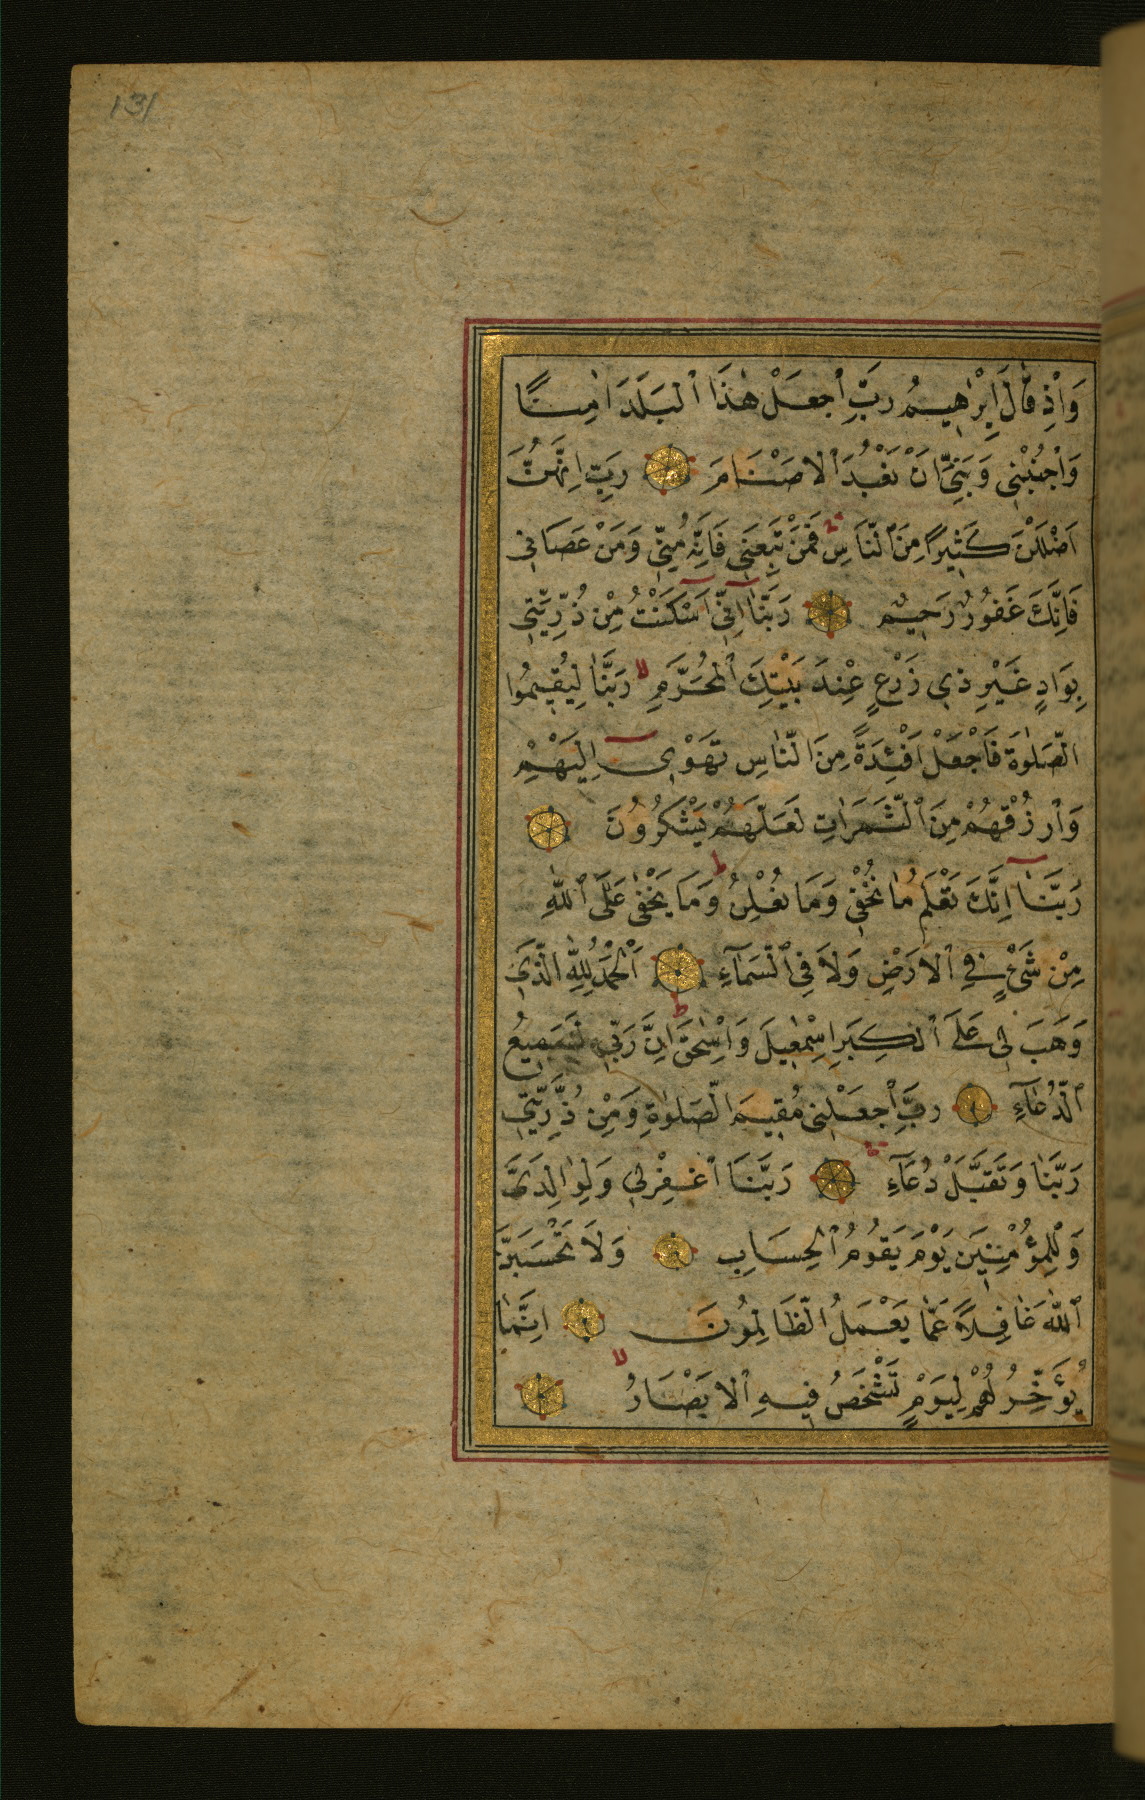 131
وَاِذْ قَالَ اِبْرٰهِيمُ رَبِّ اجْعَلْ هٰذَا الْبَلَدَ اٰمِنًا
وَاجْنُبْنِى وَبَنِىَّ اَنْ نَعْبُدَ الْاَصْنَامَ رَبِّ اِنَّهُنَّ
اَضْلَلْنَ كَثِيرًا مِنَ النَّاسِ فَمَنْ تَبِعَنِى فَاِنَّهُ مِنِّى وَمَنْ عَصَانِى
فَاِنَّكَ غَفُورٌ رَحِيمٌ رَبَّنَا اِنِّى اَسْكَنْتُ مِنْ ذُرِّيَّتِى
بِوَادٍ غَيْرِ ذِى زَرْعٍ عِنْدَ بَيْتِكَ الْمُحَرَّمِ لا رَبَّنَا لِيُقِيمُوا
الصَّلٰوةَ فَاجْعَلْ اَفْئِدَةً مِنَ النَّاسِ تَهْوِى اِلَيْهِمْ
وَارْزُقْهُمْ مِنَ الثَّمَرَاتِ لَعَلَّهُمْ يَشْكُرُونَ
رَبَّنَا اِنَّكَ تَعْلَمُ مَا نُخْفِى وَمَا نُعْلِنُ ط وَمَا يَخْفٰى عَلَى اللّٰهِ
مِنْ شَىْءٍ فِى الْاَرْضِ وَلَا فِى السَّمَآءِ اَلْحَمْدُ لِلّٰهِ الَّذِى
وَهَبَ لِى عَلَى الْكِبَرِ اِسْمٰعِيلَ وَاِسْحٰقَ ط اِنَّ رَبِّى لَسَمِيعُ
الدُّعَآءِ رَبِّ اجْعَلْنِى مُقِيمَ الصَّلٰوةِ وَمِنْ ذُرِّيَّتِى
رَبَّنَا وَتَقَبَّلْ دُعَآءِ رَبَّنَا اغْفِرْ لِى وَلِوَالِدَىَّ
وَلِلْمُؤْمِنِينَ يَوْمَ يَقُومُ الْحِسَابِ وَلَا تَحْسَبَنَّ
اللّٰهَ غَافِلًا عَمَّا يَعْمَلُ الظَّالِمُونَ اِنَّمَا
يُؤَخِّرُهُمْ لِيَوْمٍ تَشْخَصُ فِيهِ الْاَبْصَارُ لا